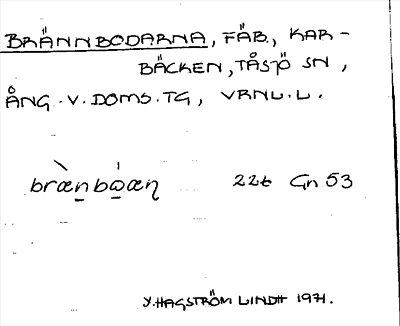 BRÄNNBODARNA, FÄB., KAR-
BÄCKEN, TÅSJÖ SN,
ÅNG. V. DOMS. TG, VRNL. L.
bræ̀n̲bώ̲æɳ 22t Gn 53
Y. HAGSTRÖM LINDH 1971.